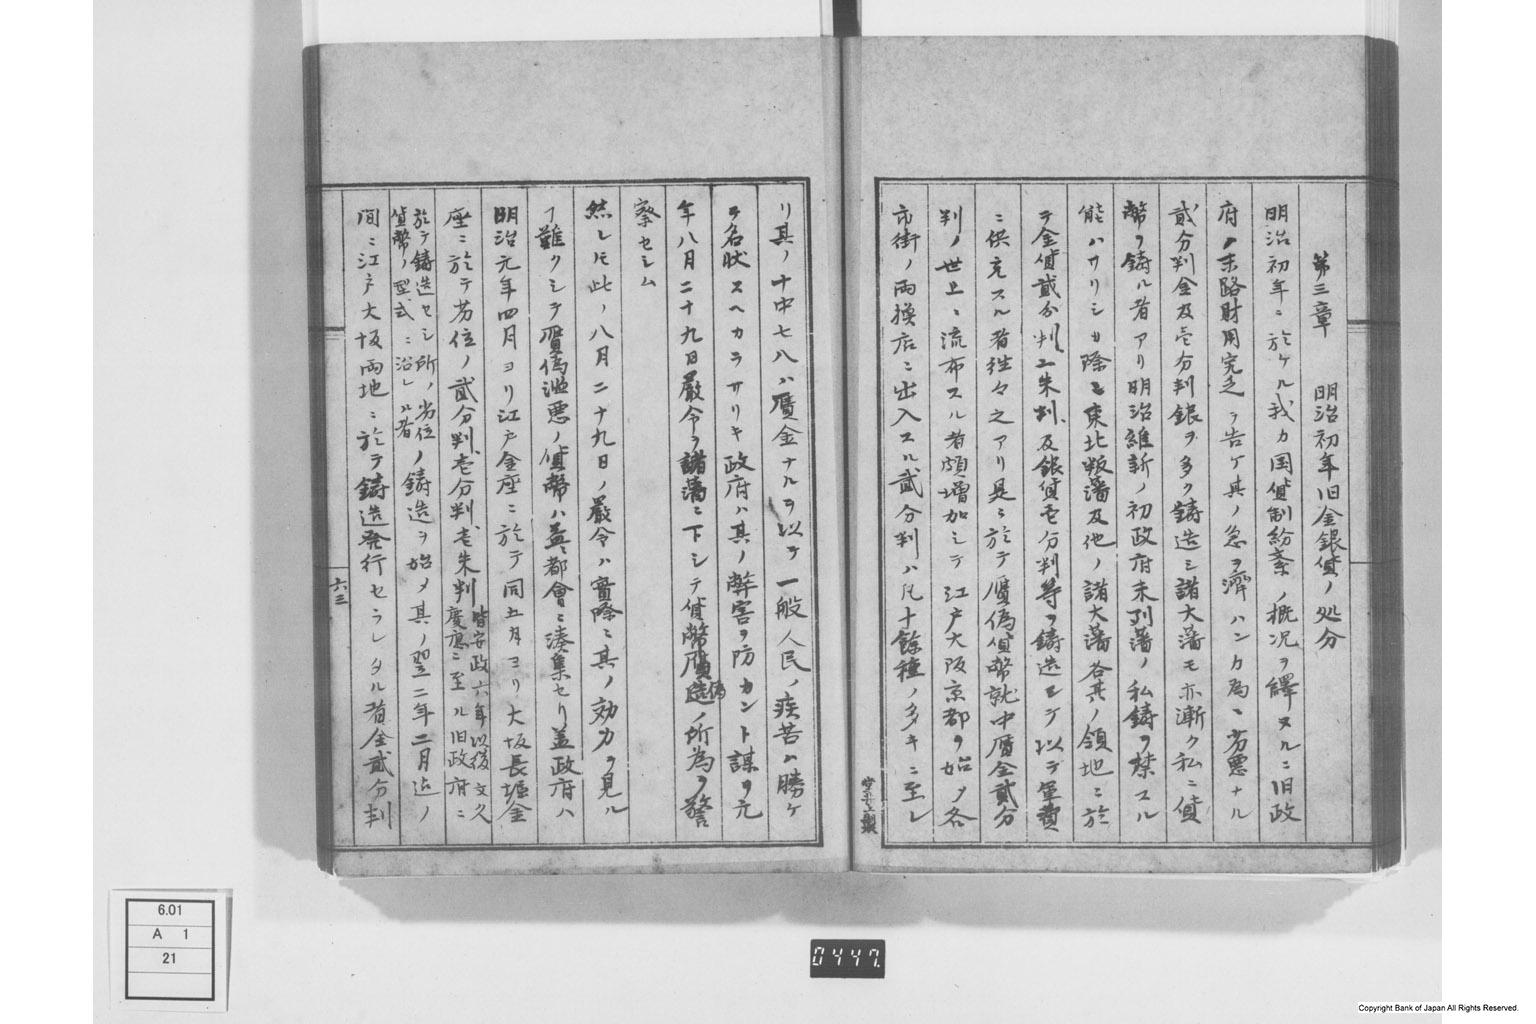 第三章　明治初年旧金銀貨ノ処分
明治初年ニ於ケル我カ国貨制紛紊ノ概況ヲ繹ヌルニ旧政
府ノ末路財用究乏ヲ告ケ其ノ急ヲ濟ハンカ為メ劣悪ナル
貳分判金及壱分判銀ヲ多ク鋳造シ諸大藩モ亦漸ク私ニ貨
幣ヲ鋳ル者アリ明治維新ノ初政府未タ列藩ノ私鋳ヲ禁スル
能ハサリシカ際ニ東北叛藩及他ノ諸大藩各其ノ領地ニ於
テ金貨貳分判二朱判及銀貨壱分判等ヲ鋳造シ以テ軍費
ニ供充スル者往々之アリ是ニ於テ贋偽貨幣就中贋金貳分
判ノ世上ニ流布スル者頗増加シテ江戸大阪京都ヲ始メ各
市街ノ両換店ニ出入スル貳分判ハ凡十餘種ノ多キニ至レ
リ其ノ十中七八ハ贋金ナルヲ以テ一般人民ノ疾苦ハ勝ケ
テ名状スヘカラサリキ政府ハ其ノ弊害ヲ防カント謀リ元
年八月二十九日嚴令ヲ諸藩ニ下シテ貨幣贋造ノ所為ヲ警
偽
察セシム
然レ𪜈此ノ八月二十九日ノ嚴令ハ實際ニ其ノ効力ヲ見ル
ヿ難クシテ贋偽濫悪ノ貨幣ハ益都會ニ湊集セリ蓋政府ハ
明治元年四月ヨリ江戸金座ニ於テ同五月ヨリ大坂長堀金
座ニ於テ劣位ノ貳分判壱分判壱朱判
皆安政六年以後文久
慶應ニ至ル旧政府ニ
於テ鋳造セシ所ノ劣位ノ鋳造ヲ始メ其ノ翌二年二月迄ノ
貨幣ノ型式ニ沿レル者
間ニ江戸大坂両地ニ於テ鋳造発行セラレタル者金貳分判
六三
6.01
A 1
21
0447.
Copyright Bank of Japan All Rights Reserved.